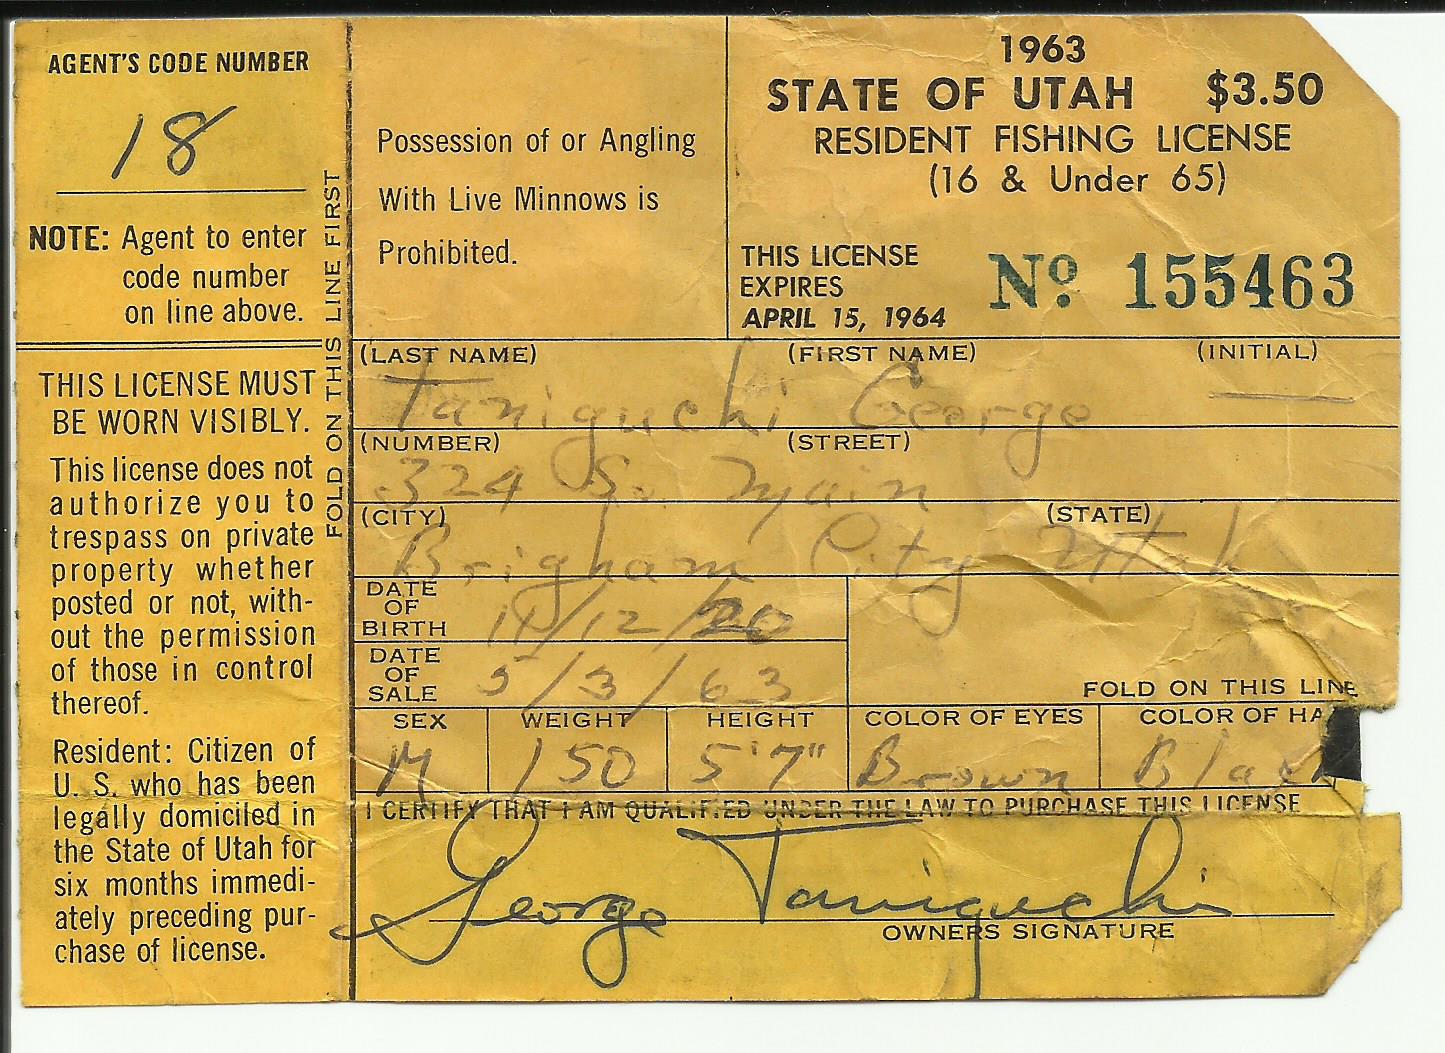 AGENT'S CODE NUMBER
18
NOTE: Agent to enter
code number
on line above.
THIS LICENSE MUST
BE WORN VISIBLY.
This license does not
authorize you to
trespass on private
property whether
posted or not, with-
out the permission
of those in control
thereof.
Resident: Citizen of
U. S. who has been
legally domiciled in
the State of Utah for
six months immedi-
ately preceding pur-
chase of license.
FOLD ON THIS LINE FIRST
Possession of or Angling
With Live Minnows is
Prohibited.
1963
STATE OF UTAH $3.50
RESIDENT FISHING LICENSE
(16 & Under 65)
THIS LICENSE
EXPIRES
APRIL 15, 1964
Nº 155463
(LAST NAME) (FIRST NAME) (INITIAL)
Taniguchi George —
(NUMBER) (STREET)
324 So. Main
(CITY) (STATE)
Brigham City Utah
DATE
OF
BIRTH
/12/20
DATE
OF
SALE
5/3/63
FOLD ON THIS LINE
SEX WEIGHT HEIGHT COLOR OF EYES COLOR OF HA
M 150 5'7" Brown Black
I CERTIFY THAT I AM QUALIFIED UNDER THE LAW TO PURCHASE THIS LICENSE
George Taniguchi
OWNERS SIGNATURE